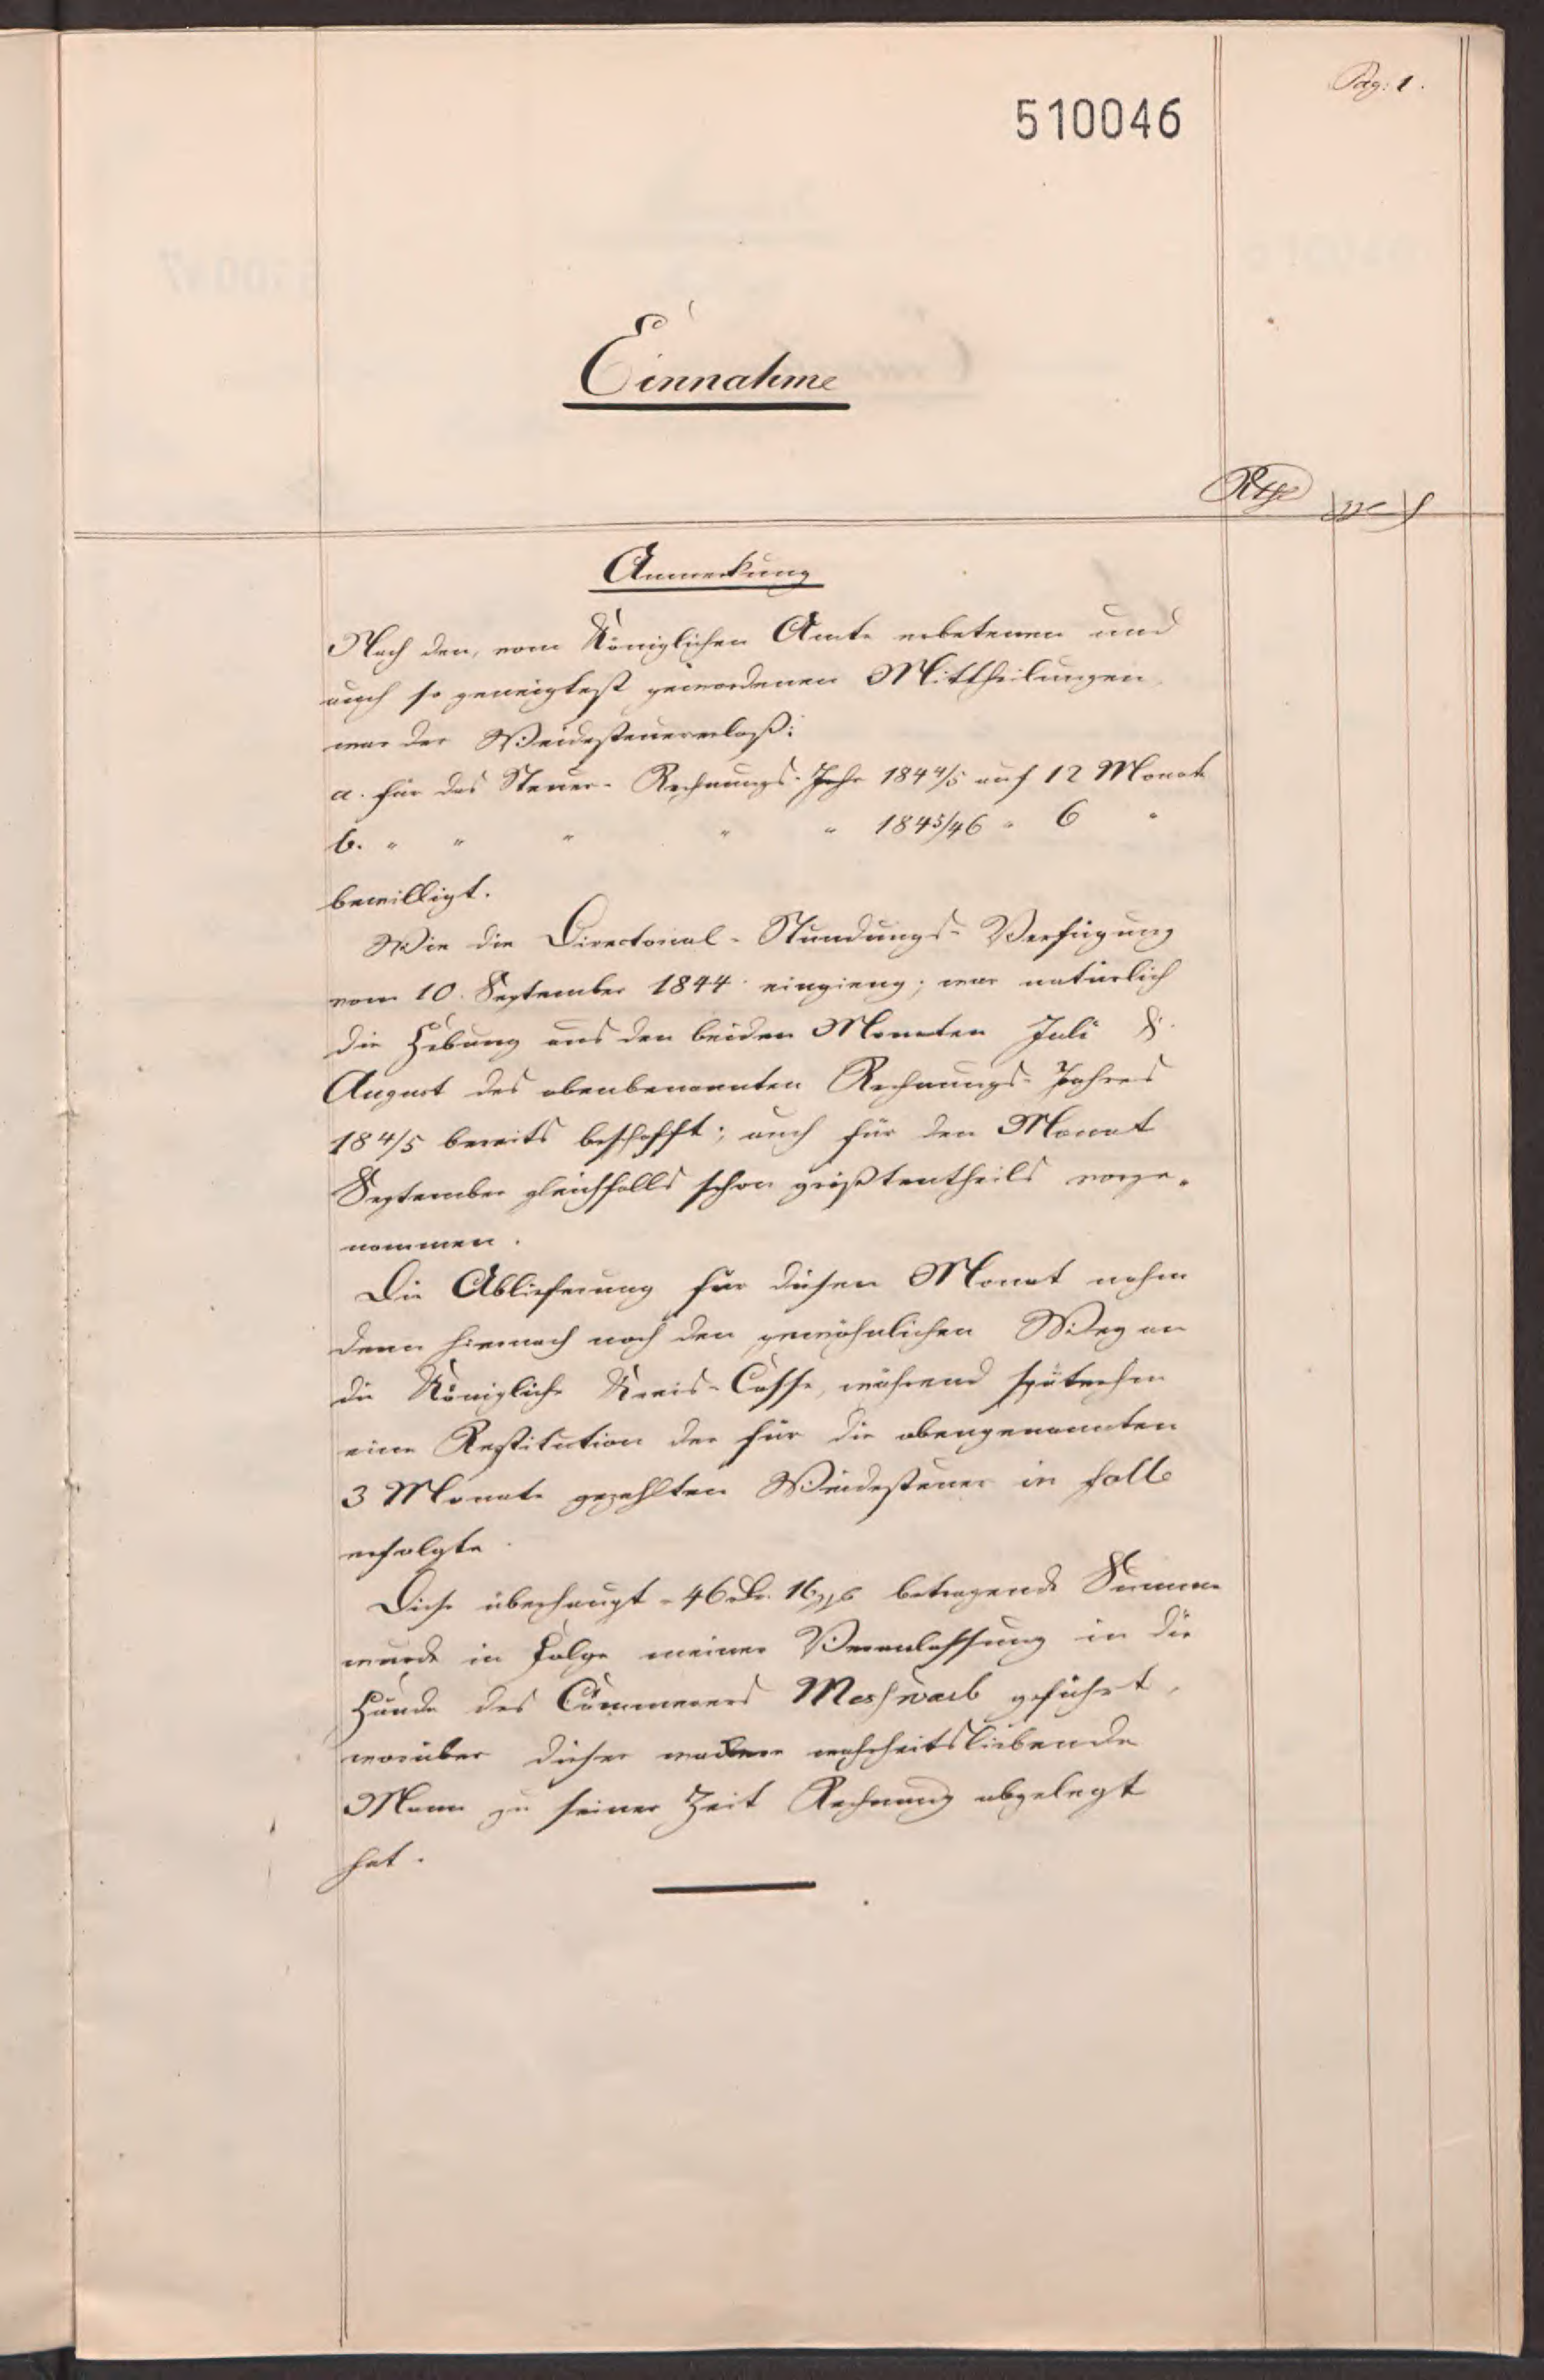 Pag: 1.
510046
Einnahme
Rthr
Anmerkung
Nach den, vom Königlichen Amte erbetenen und
auch so geneigtest gewordenen Mittheilungen
war der
a. für das Steuer- Rechnungs-Jahr 184 4/5 auf 12 Monate
b. " " " " " 184 5/46 " 6 "
bewilligt.
Wie die Directorial-Stundungs-Verfügung
vom 10. September 1844 eingieng; war natürlich
die Hebung aus den beiden Monaten Juli &
August des obenbenannten Rechnungs-Jahres
184 4/5 bereits beschafft; auch für den Monat
September gleichfalls schon größtentheils vorge-
nommen.
Die Ablieferung für diesen Monat nahm
denn hiernach noch den gewöhnlichen Weg an
die Königliche Kreis-Casse, während späterhin
eine Restitution der für die obengenannten
3 Monate gezahlten in
erfolgte.
Diese überhaupt 46 16 betragende Summe
wurde in Folge meiner Veranlassung in die
Hände des Cämmerers geführt,
worüber dieser wahrheitsliebende
Mann zu seiner Zeit Rechnung abgelegt
hat.